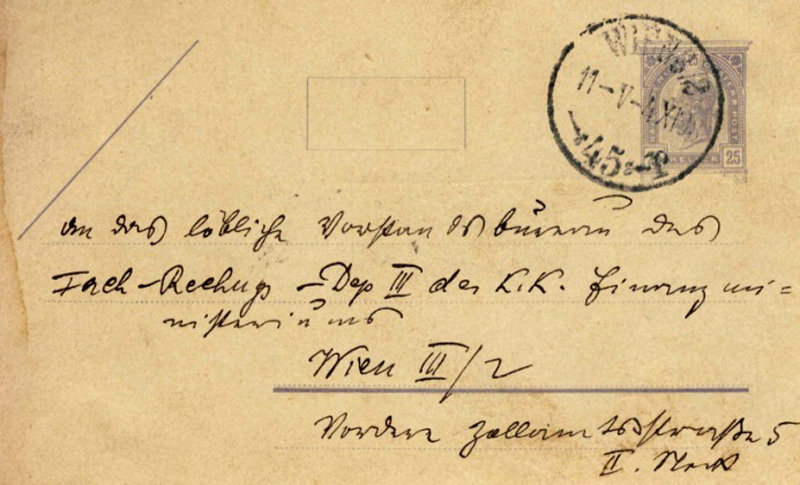 WIEN
11-V-4
45
25
an das löbliche Vorstandsbüreau des
Fach-Rechngs-Dep III des K.K. Finanzmi=
nisteriums
Wien III/2
Vordere Zollamtsstraße 5
II. Stock